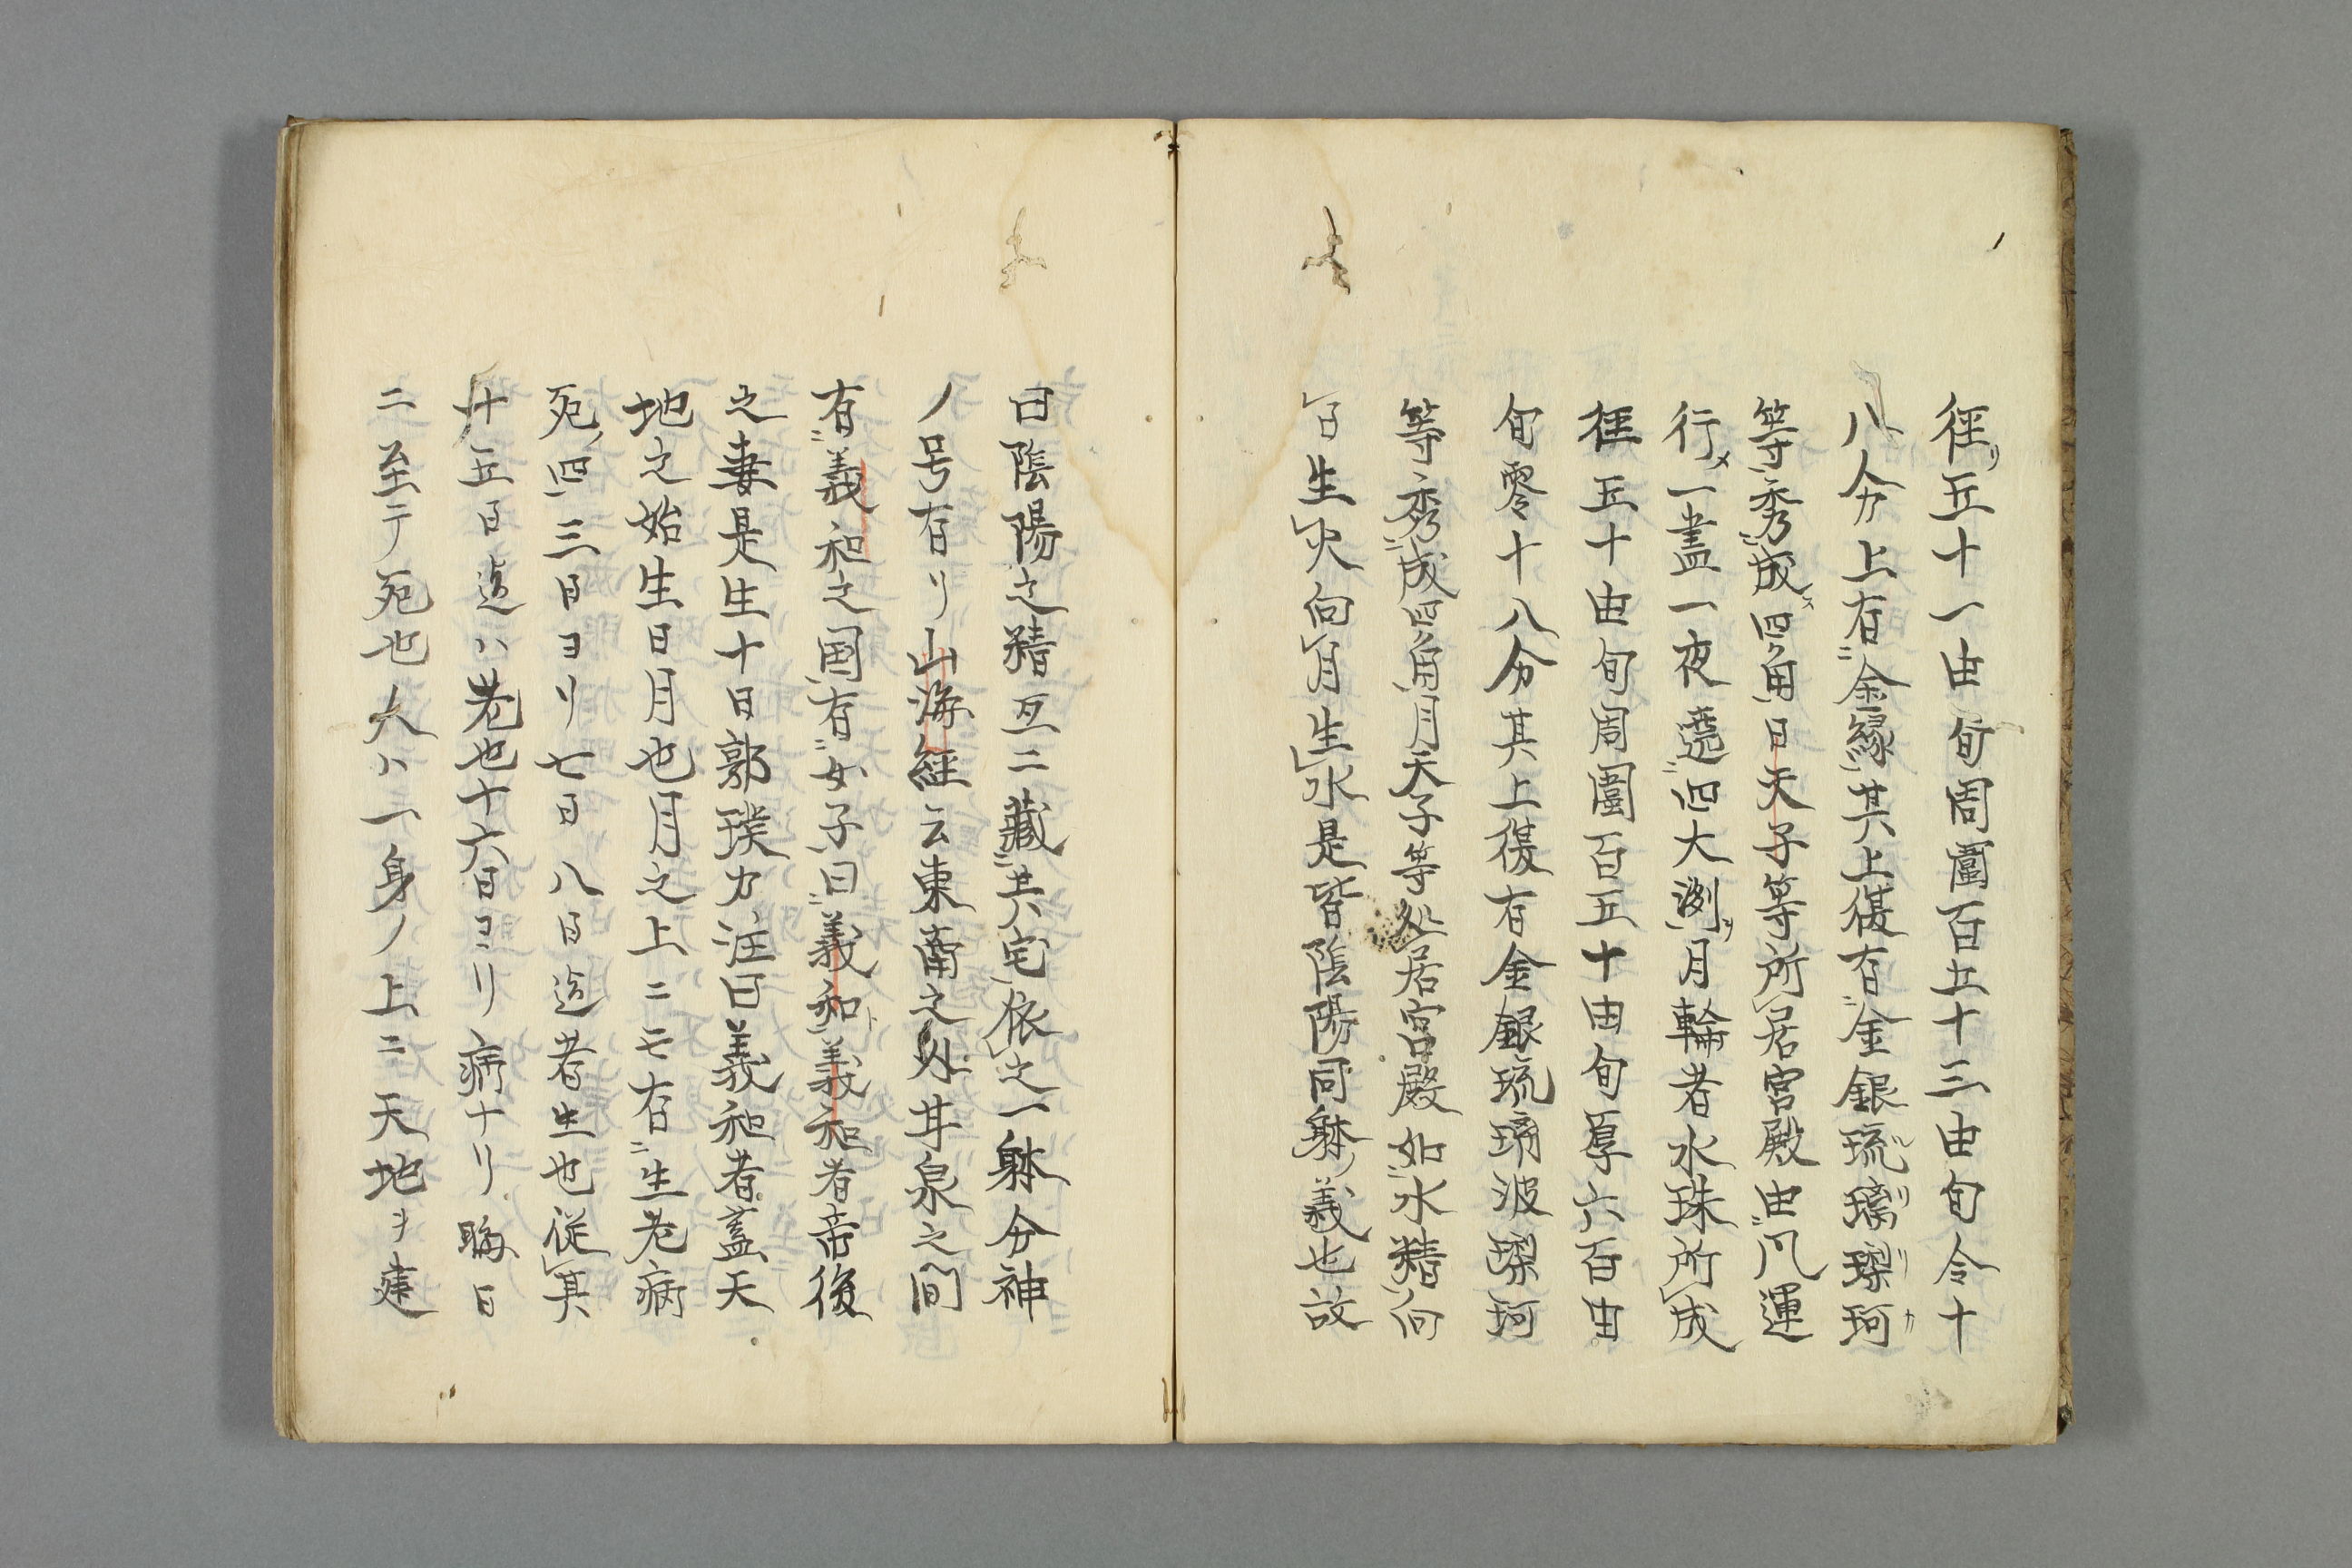 径五十一由旬周圍百五十三由旬令十
八分上有金縁其上復有金銀琉璃梨珂
等秀成四角日天子等所居宮殿由凡運
行一晝一夜遶四大洲月輪者水珠所成
径五十由旬周圍百五十由旬厚六百由
旬零十八分其上復有金銀琉璃波梨珂
等秀成四角月天子等所居宮殿始水精向
日生火向月生水是皆陰陽同躰義也故
日陰陽之精互ニ蔵其宅依之一躰分神
ノ号有リ山海経云東南之外井泉之間
有義和之國有女子曰義和義和者帝後
之妻是生十日郭璞カ注曰義和者蓋天
地之始生日月也月之上ニモ有生老病
死四三日ヨリ七日八日迄者生也従其
十五日迄ハ老也十六日ヨリ病ナリ晦日
ニ至テ死也人ハ一身ノ上ニ天地ヲ建